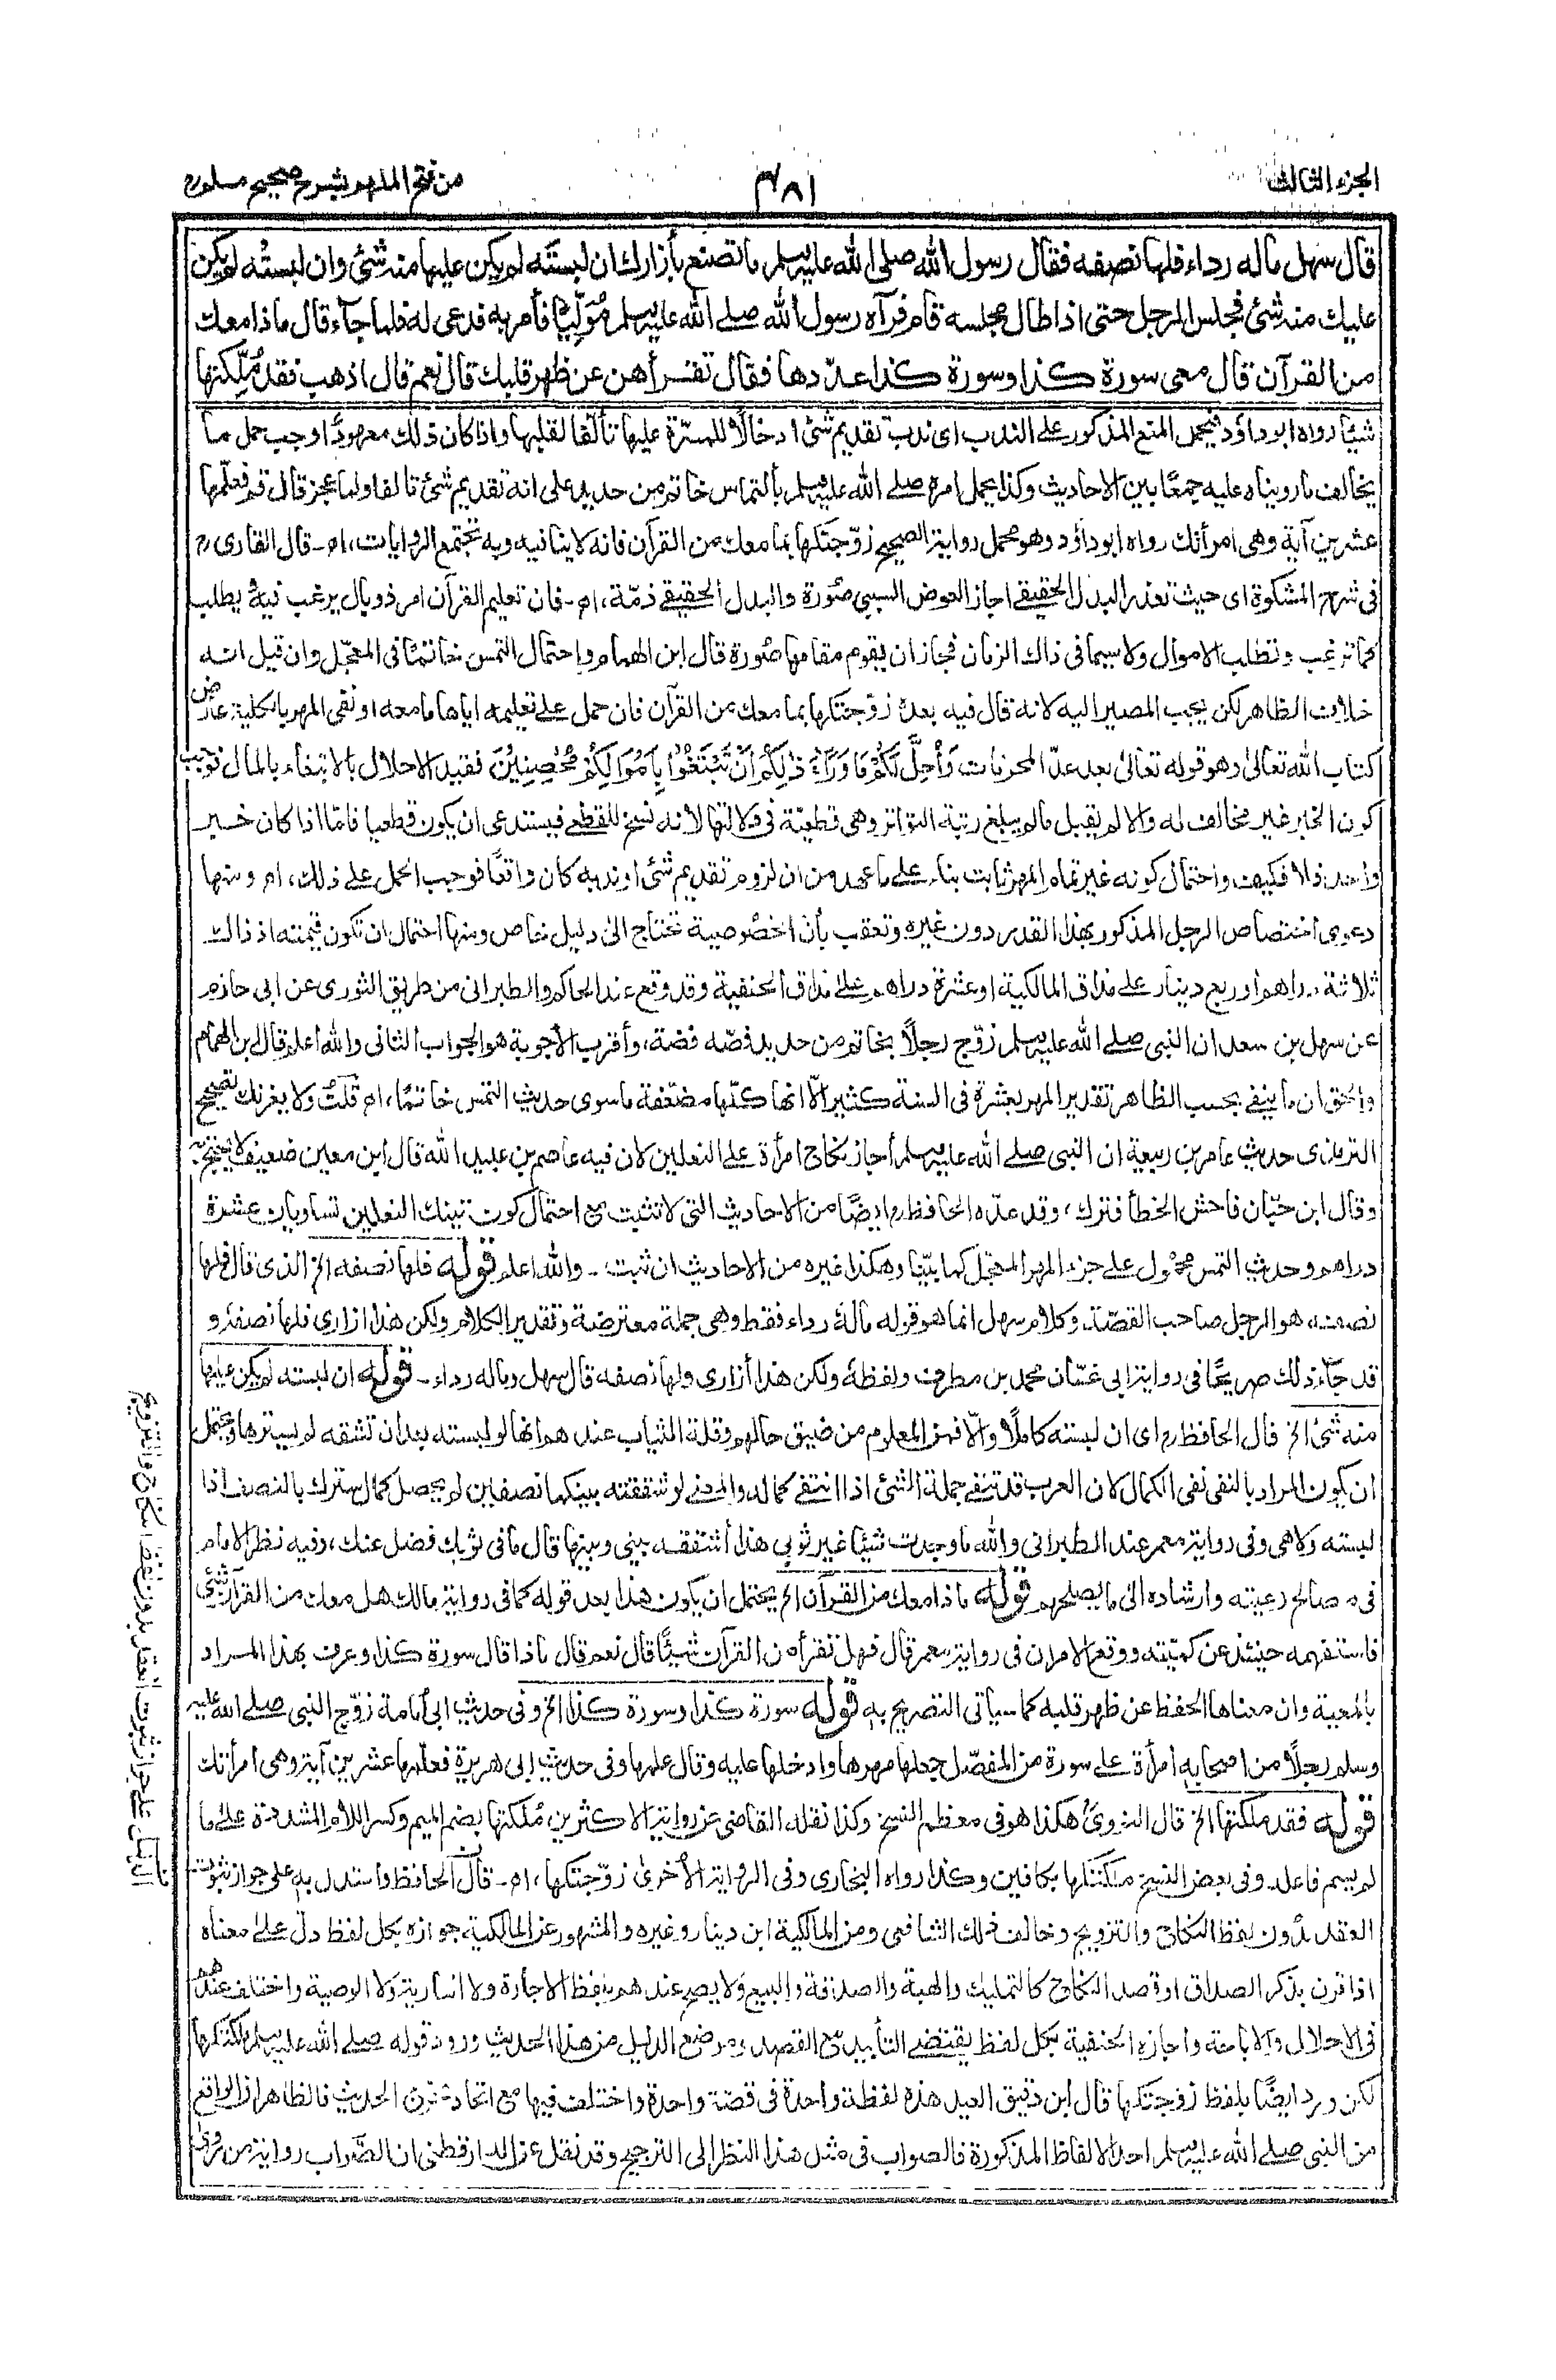 الجزء الثالث
٤٨١
من فتح الملهم بشرح صحيح مسلم
قال سهل ماله رداء فلها نصفه فقال رسول الله صلى الله عليه وسلم ما تصنع بأزارك ان لبستَه لم يكن عليها منه شئ وان لبستْه لم يكن
عليك منه شئ فجلس الرجل حتى اذا طال مجلسه قام فرآه رسول الله صلے الله عليه وسلم مُوَلِّيًا فأمر به فدعى له فلما جآء قال ماذا معك
من القرآن قال معى سورة كذا وسورة كذا عدّدها فقال تقرأهن عن ظهر قلبك قال نعم قال اذهب فقد مُلّكتها
شيئًا رواه ابوداؤد فيحمل المنع المذكور على الندب اى ندب تقديم شئ ادخالًا للمسرّة عليها تألّفا لقلبها واذا كان ذلك معهودًا وجب حمل ما
يخالف ما رويناه عليه جمعًا بين الاحاديث وكذا يحمل امره صلے الله عليه وسلم بألتماس خاتم من حديد على انه تقديم شئ تألفا ولما عجز قال قم فعلّمها
عشرين آية وهى امرأتك رواه ابوداؤد وهو محمل رواية الصحيح زوّجتكها بما معك من القرآن فانه لا ينافيه وبه تجتمع الروايات، اه - قال القارى رح
فى شرح المشكوة اى حيث تعذر البدل الحقيقے اجاز العوض السببى صورة والبدل الحقيقے ذمّة، اه - فان تعليم القرآن امر ذو بال يرغب فيه ويطلب
كما ترغب وتطلب الاموال ولا سيما فى ذاك الزمان فجاز ان يقوم مقامها صورة قال ابن الهمام واحتمال التمس خاتمًا فى المعجّل وان قيل انه
خلاف الظاهر لكن يجب المصير اليه لانه قال فيه بعدهٗ زوّجتكها بما معك من القرآن فان حمل على تعليمه اياها ما معه او نفى المهر بالكلية عارض
كتاب الله تعالىٰ وهو قوله تعالىٰ بعد عدّ المحرمات وَأُحِلَّ لَكُمْ مَا وَرَآءَ ذٰلِكُمْ اَنْ تَبْتَغُوْا بِاَمْوَالِكُمْ مُحْصِنِيْنَ فقيد الاحلال بالابتغاء بالمال فوجب
كون الخبر غير مخالف له والا لم يقبل ما لم يبلغ رتبة التواتر وهى قطعيّة فى دلالتها لانه نسخ للقطعے فيستدعى ان يكون قطعيا فاما اذا كان خبر
واحد فلا فكيف واحتمال كونه غير تمام المهر ثابت بناء على ما عهد من ان لزوم تقديم شئ او ندبه كان واقعًا فوجب الحمل على ذلك، اه ومنها
دعوى اختصاص الرجل المذكور بهذا القدر دون غيره وتعقب بأن الخصوصية تحتاج الىٰ دليل خاص ومنها احتمال ان تكون قيمته اذ ذاك
ثلاثة دراهم او ربع دينار على مذاق المالكية او عشرة دراهم على مذاق الحنفية وقد وقع عند الحاكم والطبرانى من طريق الثورى عن ابى حازم
عن سهل بن سعد ان النبى صلے الله عليه وسلم زوّج رجلًا بخاتم من حديد فصّه فضة، وأقرب الأجوبة هو الجواب الثانى والله اعلم قال ابن الهمام
والحق ان ما ينفے بحسب الظاهر تقدير المهر بعشرة فى السنة كثير الّا انها كلّها مضعّفة ما سوى حديث التمس خاتمًا، اه قلتُ ولا يغرنك تصحيح
الترمذى حديث عامر بن ربيعة ان النبى صلے الله عليه وسلم أجاز نكاح امرأة على النعلين لان فيه عاصم بن عبيد الله قال ابن معين ضعيف لا يحتج به
وقال ابن حبّان فاحش الخطأ فترك، وقد عدّه الحافظ رح ايضًا من الاحاديث التى لا تثبت مع احتمال كون تينك النعلين تساويان عشرة
دراهم وحديث التمس محمول على جزء المهر المعجّل كما بيّنا وهكذا غيره من الاحاديث ان ثبت - والله اعلم قوله فلها نصفه الخ الذى قال فلها
نصفه، هو الرجل صاحب القصّة وكلام سهل انما هو قوله مالهٗ رداء فقط وهى جملة معترضة وتقدير الكلام ولكن هذا ازارى فلها نصفهٗ و
قد جآء ذلك صريحًا فى رواية ابى غسّان محمد بن مطرف ولفظهٗ ولكن هذا أزارى ولها نصفه قال سهل وماله رداء - قوله ان لبسته لم يكن عليها
منه شئ الخ قال الحافظ رح اى ان لبسته كاملًا والّا فمن المعلوم من ضيق حالهم وقلة الثياب عندهم انها لو لبسته بعد ان تشقه لم يسترها ويحتمل
ان يكون المراد بالنفى نفى الكمال لان العرب قد تنفے جملة الشئ اذا انتفے كماله والمعنے لو شققته بينكما نصفين لم يحصل كمال سترك بالنصف اذا
لبسته ولا هى وفى رواية معمر عند الطبرانى والله ما وجدت شيئًا غير ثوبى هذا أشققه بينى وبينها قال ما فى ثوبك فضل عنك، وفيه نظر الامام
فى مصالح رعيته وارشاده الى ما يصلحهم قوله ماذا معك من القرآن الخ يحتمل ان يكون هذا بعد قوله كما فى رواية مالك هل معك من القرآن شئ
فاستفهمه حينئذ عن كميّته ووقع الامران فى رواية معمر قال فهل تقرأ من القرآن شيئًا قال نعم قال ماذا قال سورة كذا وعرف بهذا المراد
بالمعية وان معناها الحفظ عن ظهر قلبه كما سيأتى التصريح به قوله سورة كذا وسورة كذا الخ وفى حديث ابى أمامة زوّج النبى صلے الله عليه
وسلم رجلًا من اصحابه امرأة على سورة من المفصّل جعلها مهرها وادخلها عليه وقال علمها وفى حديث ابى هريرة فعلّمها عشرين آية وهى امرأتك
قوله فقد ملكتها الخ قال النووىؒ هكذا هو فى معظم النسخ وكذا نقله القاضى عن رواية الاكثرين، مُلكتها بضم الميم وكسر اللام المشددة علىٰ ما
لم يسم فاعله وفى بعض النسخ ملّكتُكها بكافين وكذا رواه البخارى وفى الرواية الأخرىٰ زوّجتكها، اه - قال الحافظ واستدل به على جواز ثبوت
العقد بدون لفظ النكاح والتزويج وخالف ذلك الشافعى ومن المالكية ابن دينار وغيره والمشهور عن المالكية جوازه بكل لفظ دلّ علىٰ معناه
اذا قرن بذكر الصداق او قصد النكاح كالتمليك والهبة والصدقة والبيع ولا يصح عندهم بلفظ الاجارة ولا العارية ولا الوصية واختلف عندهم
فى الاحلال والاباحة واجازه الحنفية بكل لفظ يقتضے التأبيد مع القصد وموضع الدليل من هذا الحديث ورود قوله صلے الله عليه وسلم ملّكتكها
لكن ورد ايضًا بلفظ زوجتكها قال ابن دقيق العيد هذه لفظة واحدة فى قصّة واحدة واختلف فيها مع اتحاد مخرج الحديث فالظاهر ان الواقع
من النبى صلے الله عليه وسلم احد الالفاظ المذكورة فالصواب فى مثل هذا النظر الى الترجيح وقد نقل عن الدارقطنى ان الصّواب رواية من روى
الدليل على جواز ثبوت العقد بدون لفظ النكاح والتزويج